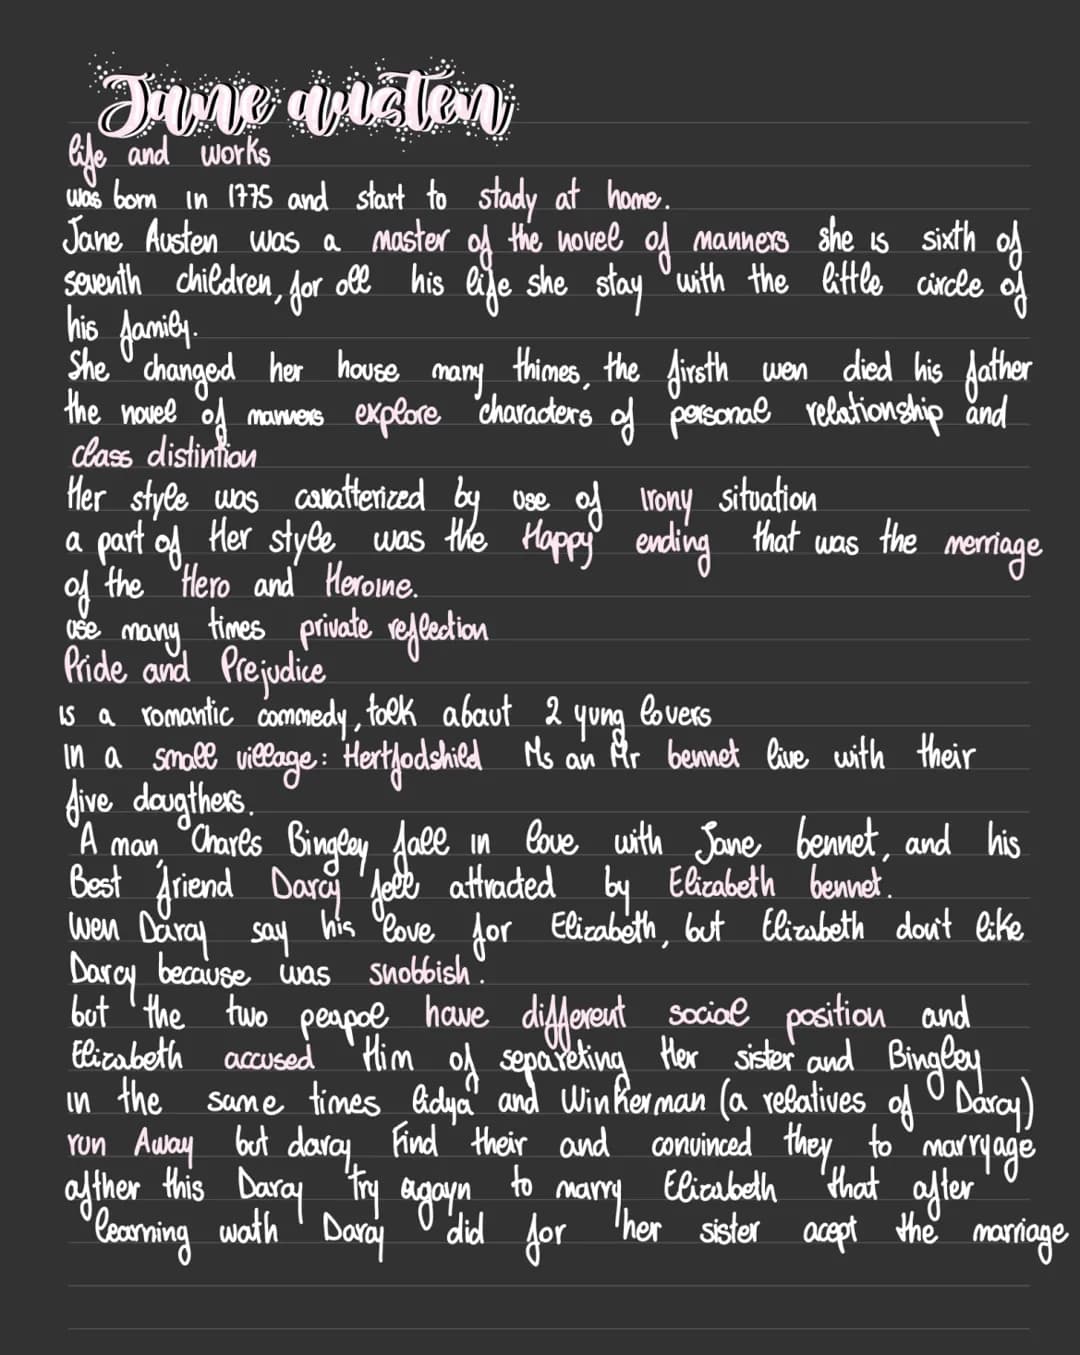 Jane austen
life and works
was born in 1775 and start to stady at home.
Jane Austen was a master of the novel of manners she is sixth of
seventh children, for all his life she stay with the little circle of
his family.
She changed her house many thimes, the firsth wen died his father
the novel of manners explore characters of personal relationship and
class distintion
Her style was caratterized by use of Irony situation
a part of Her style was the Happy ending that was the merriage
of the Hero and Heroine.
use many times private reflection
Pride and Prejudice
is a romantic commedy, talk abaut 2 yung lovers
in a small village: Hertfodshild Ms an Mr bennet live with their
five daugthers.
A man, Charls Bingley fall in love with Jane bennet, and his
Best friend Darcy fell attracted by Elizabeth bennet.
wen Darcy say his love for Elizabeth, but Elizabeth don't like
Darcy because was snobbish.
but the two peapol have different social position and
Elizabeth accused Him of separeting Her sister and Bingley
in the same times lidya and Winkerman (a relatives of Darcy)
run Away but darcy Find their and convinced they to marryage
after this Darcy try agayn to marry Elizabeth that after
learning wath Darcy did for her sister acept the marriage